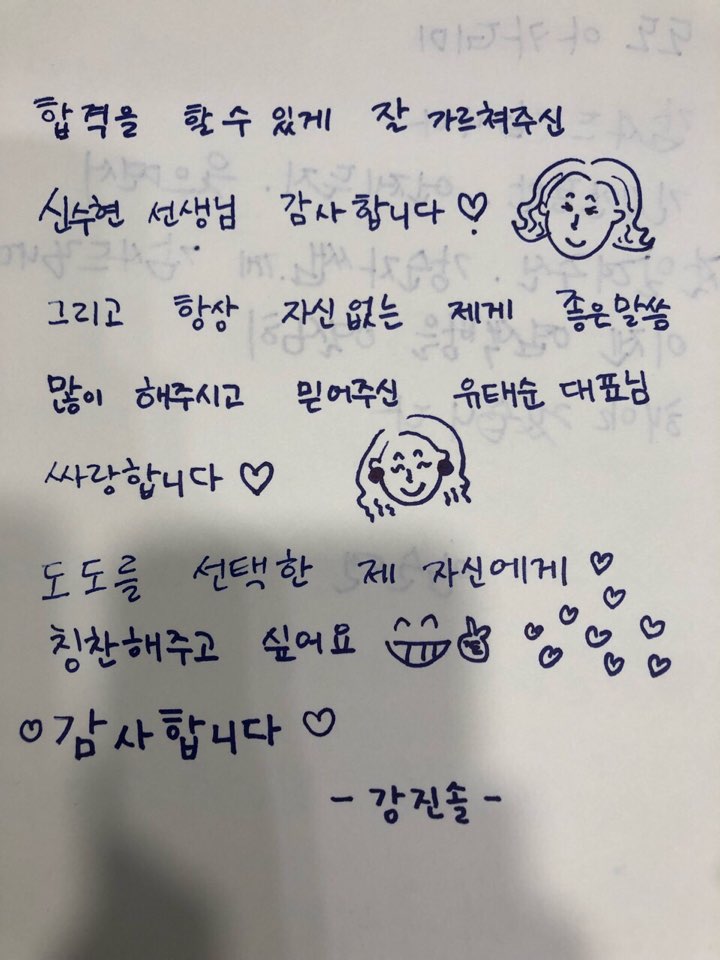 합격을 할 수 있게 잘 가르쳐주신
신수현 선생님 감사합니다♡
그리고 항상 자신없는 제게 좋은말씀
많이 해주시고 믿어주신 유태순 대표님
싸랑합니다♡
도도를 선택한 제 자신에게♡
칭찬해주고 싶어요
감사합니다♡
- 강진솔 -